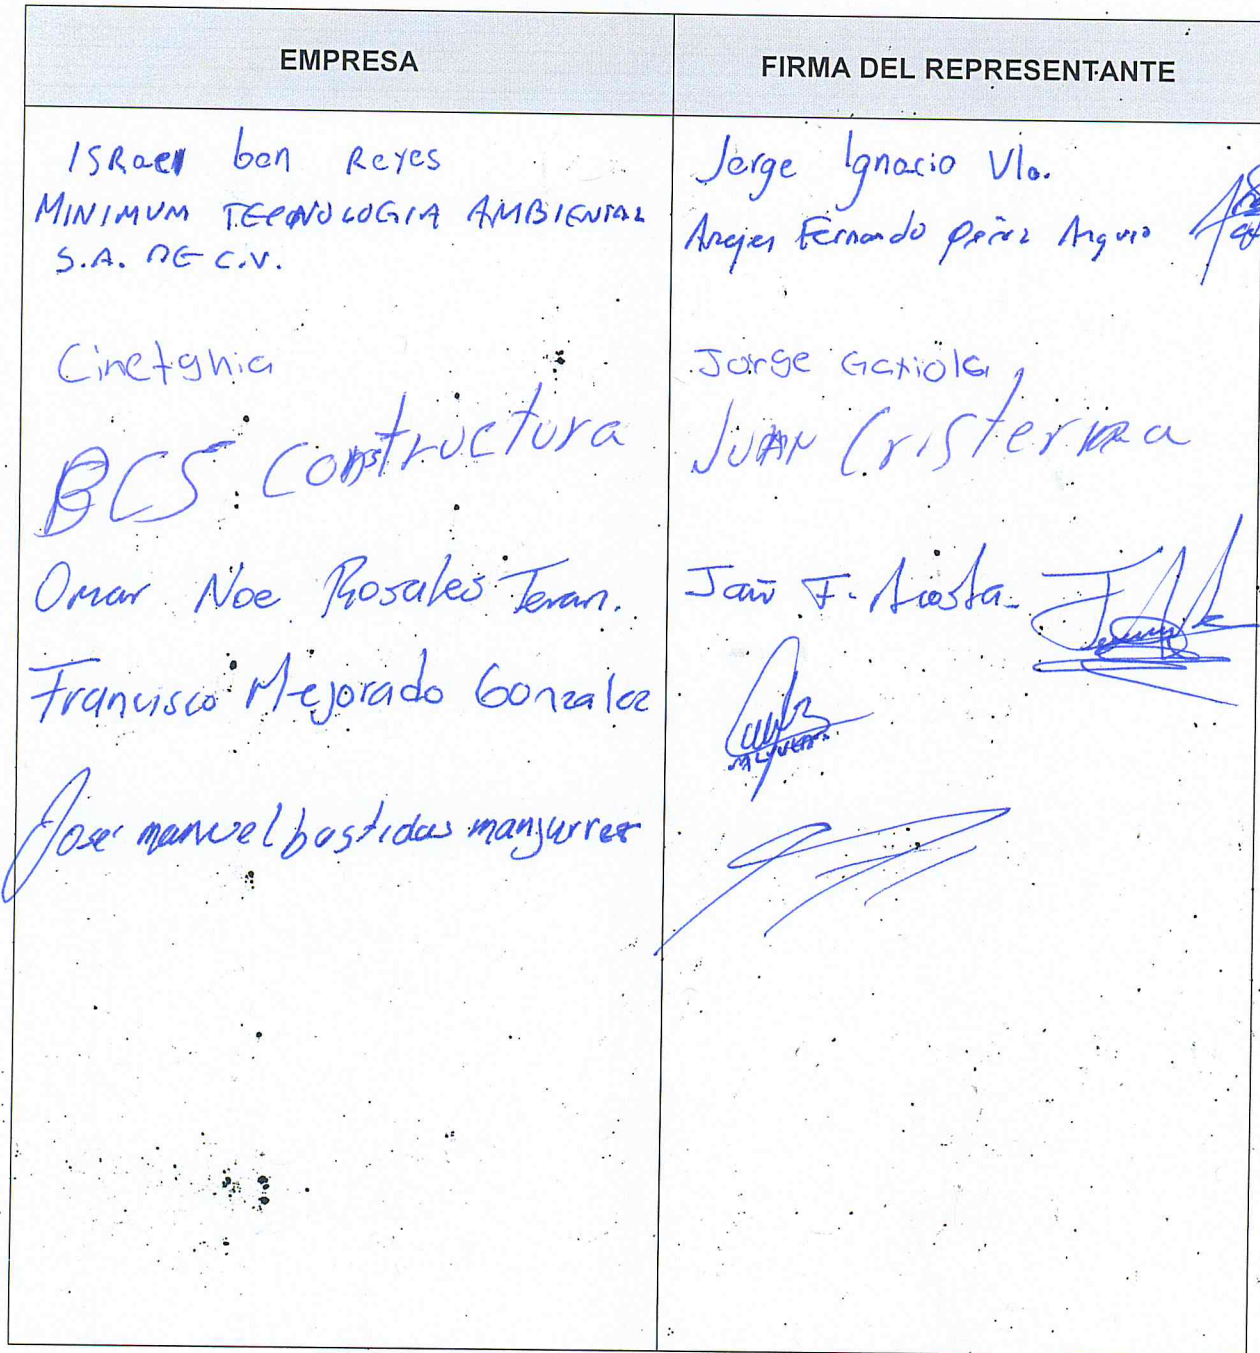 EMPRESA
FIRMA DEL REPRESENTANTE
ISRael ben Reyes
Jorge Ignacio Vla.
MINIMUM TECNOLOGIA AMBIENTAL
Fernando
S.A. DE C.V.
Cinetghia
Jorge
BCS Constructura
JUAN Cristerna
Omar Noe Rosales Teran.
F. Acosta
Francisco Mejorado Gonzalez
José manuel bastidas manjurrez